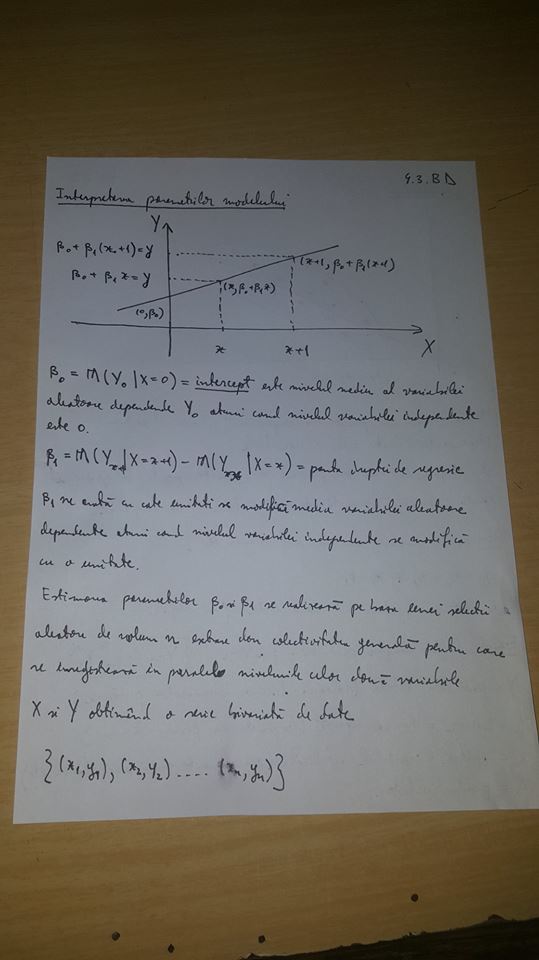 4.3. BD
Interpretarea parametrilor modelului
Y
β0 + β1(x0+1)=y
β0 + β1 x = y
(x+1, β0+β1(x+1)
(x, β0+β1x)
(0, β0)
x x+1 X
β0 = M(Y0 | X=0) = intercept este nivelul mediu al variabilei
aleatoare dependente Y0 atunci cand nivelul variabilei independente
este 0.
β1 = M(Yx+1 | X=x+1) - M(Yx | X=x) = panta dreptei de regresie
β1 ne arată cu cate unitati se modifică media variabilei aleatoare
dependente atunci cand nivelul variabilei independente se modifică
cu o unitate.
Estimarea parametrilor β0 si β1 se realizează pe baza unei selectii
aleatoare de volum n extrase din colectivitatea generală pentru care
se inregistrează in paralel nivelurile celor două variabile
X si Y obtinând o serie bivariată de date
{(x1,y1), (x2,y2) .... (xn,yn)}